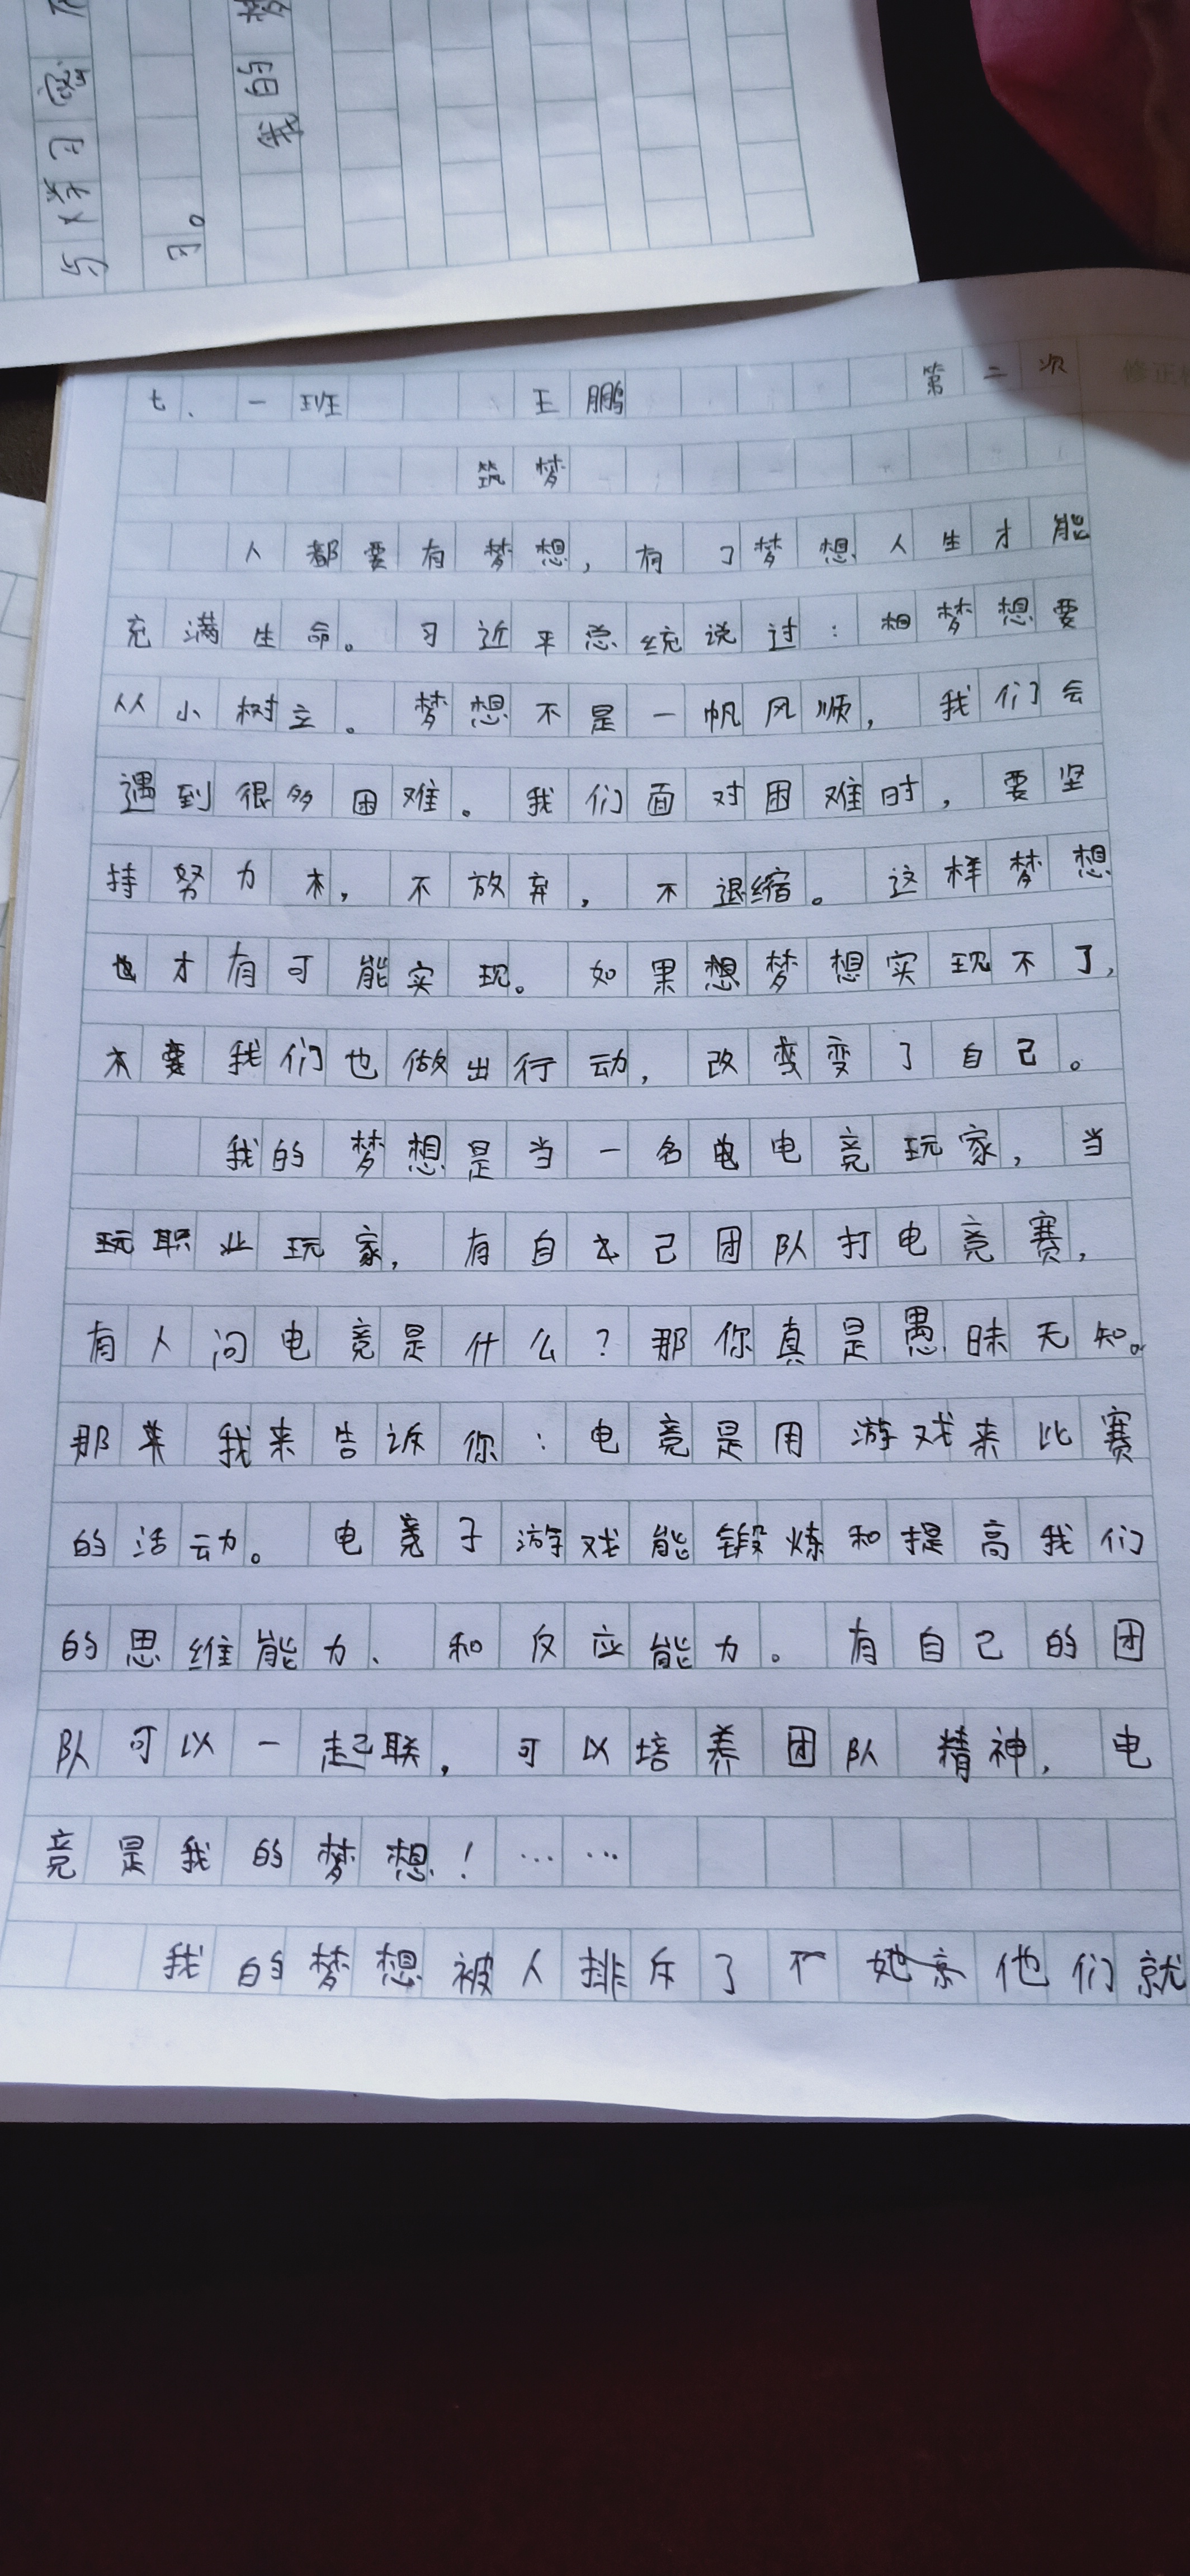 与学习
习。
我的梦
七、一班 王鹏 第二次
筑梦
人都要有梦想，有了梦想人生才能
充满生命。习近平总统说过：相梦想要
从小树立。梦想不是一帆风顺，我们会
遇到很多困难。我们面对困难时，要坚
持努力木，不放弃，不退缩。这样梦想
也才有可能实现。如果想梦想实现不了，
木要我们也做出行动，改变变了自己。
我的梦想是当一名电电竞玩家，当
玩职业玩家，有自己团队打电竞赛，
有人问电竞是什么？那你真是愚昧无知。
那来我来告诉你：电竞是用游戏来比赛
的活动。电竞子游戏能锻炼和提高我们
的思维能力、和反应能力。有自己的团
队可以一起联，可以培养团队精神，电
竞是我的梦想！……
我的梦想被人排斥了不她京他们就